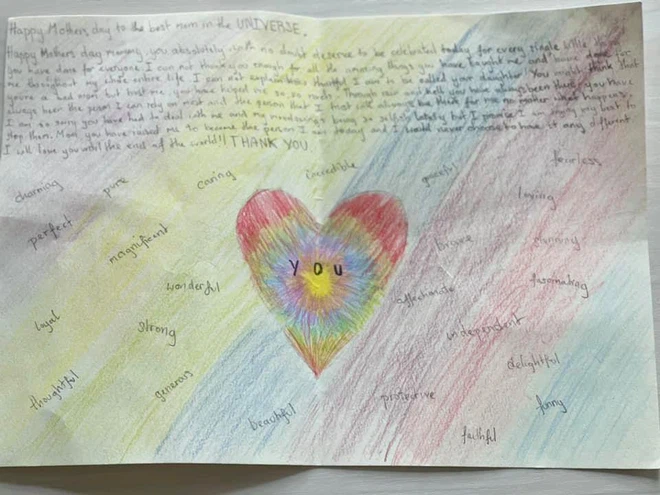 Happy Mothers day to the best mom in the UNIVERSE.
Happy Mothers day mommy, you absolutely with no doubt deserve to be celebrated today for every single little thing
you have done for everyone. I can not thank you enough for all the amazing things you have taught me and have done for
me throughout my whole entire life. I can not explain how thankful I am to be called your daughter. You might think that
you're a bad mom but trust me, you have helped me so so much. Through and you have always been there, you have
always been the person I can rely on most and the person that I trust will always be there for me no matter what happens.
I am so sorry you have had to deal with me and my moodiness being so selfish lately but I promise I am trying my best to
stop them. Mom you have raised me to become the person I am today and I would never choose to have it any different
I will love you until the end of the world!! THANK YOU
charming
pure
caring
incredible
graceful
fearless
loving
perfect
magnificent
brave
stunning
YOU
wonderful
affectionate
fasanating
loyal
strong
independent
delightful
thoughtful
generous
beautiful
protective
funny
faithful